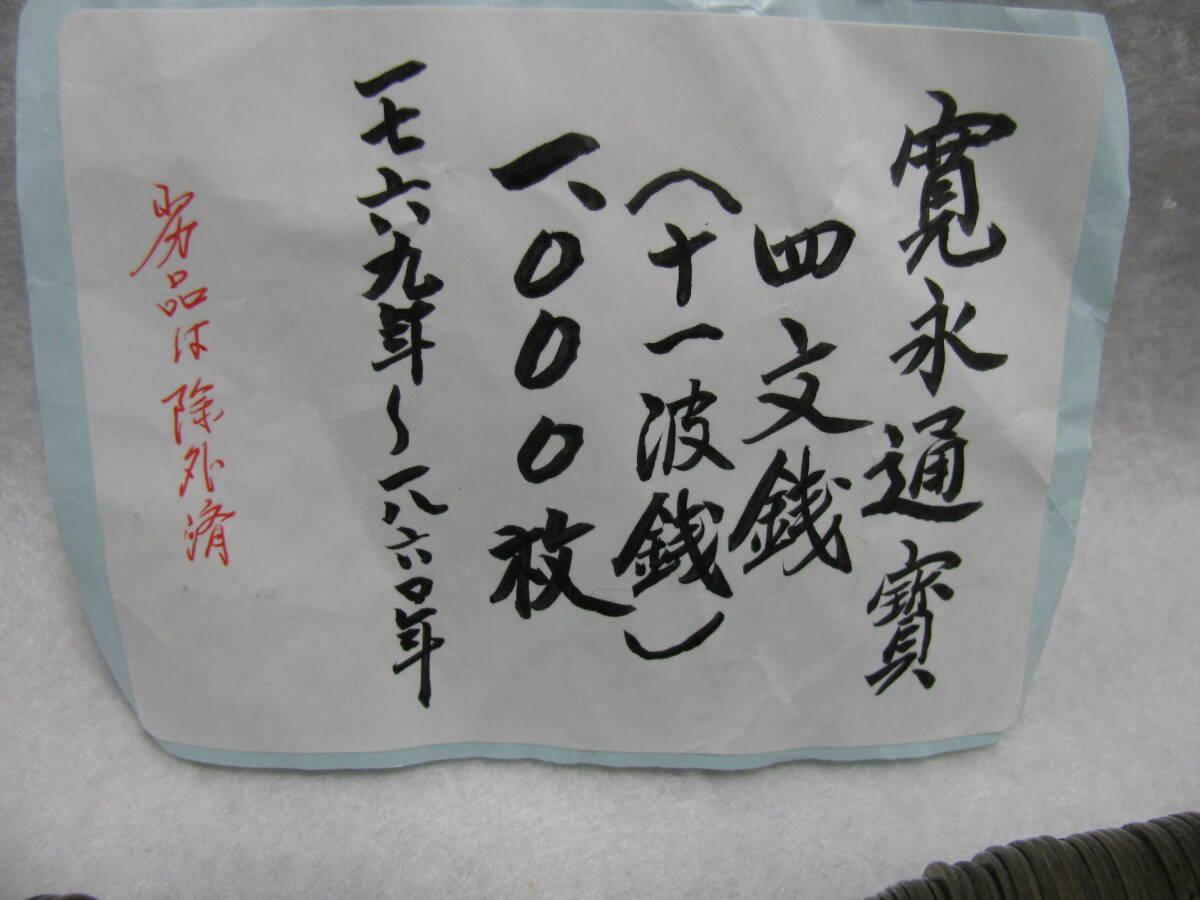 寛永通寳
四文銭
（十一波銭）
一、〇〇〇枚
一七六九年〜一八六〇年
劣品は除外済